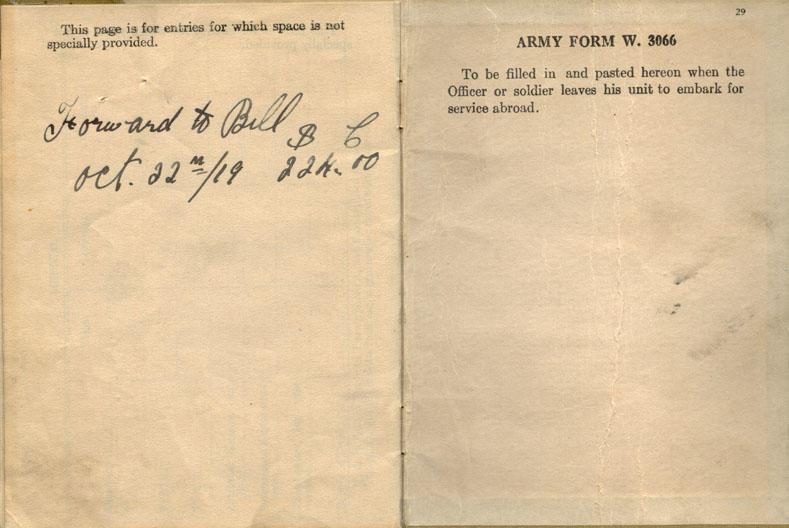 This page is for entries for which space is not
specially provided.
Forward to Bill
$ C
Oct. 22 /19 224.00
29
ARMY FORM W. 3066
To be filled in and pasted hereon when the
Officer or soldier leaves his unit to embark for
service abroad.